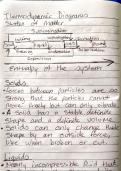 Thermodynamic Diagrams
States of Matter
Sublimation
Melting
Vaporisation
Solid
Liquid
Gas
Freezing
Condensation
Deposition
Enthalpy of the system
Solids
Forces between particles are so
strong that the particles cannot
move freely but can only vibrate.
A solid has a stable definite
shape and a definite volume.
Solids can only change their
shape by an outside force
like when broken or cut.
Liquids
Nearly incompressible fluid that